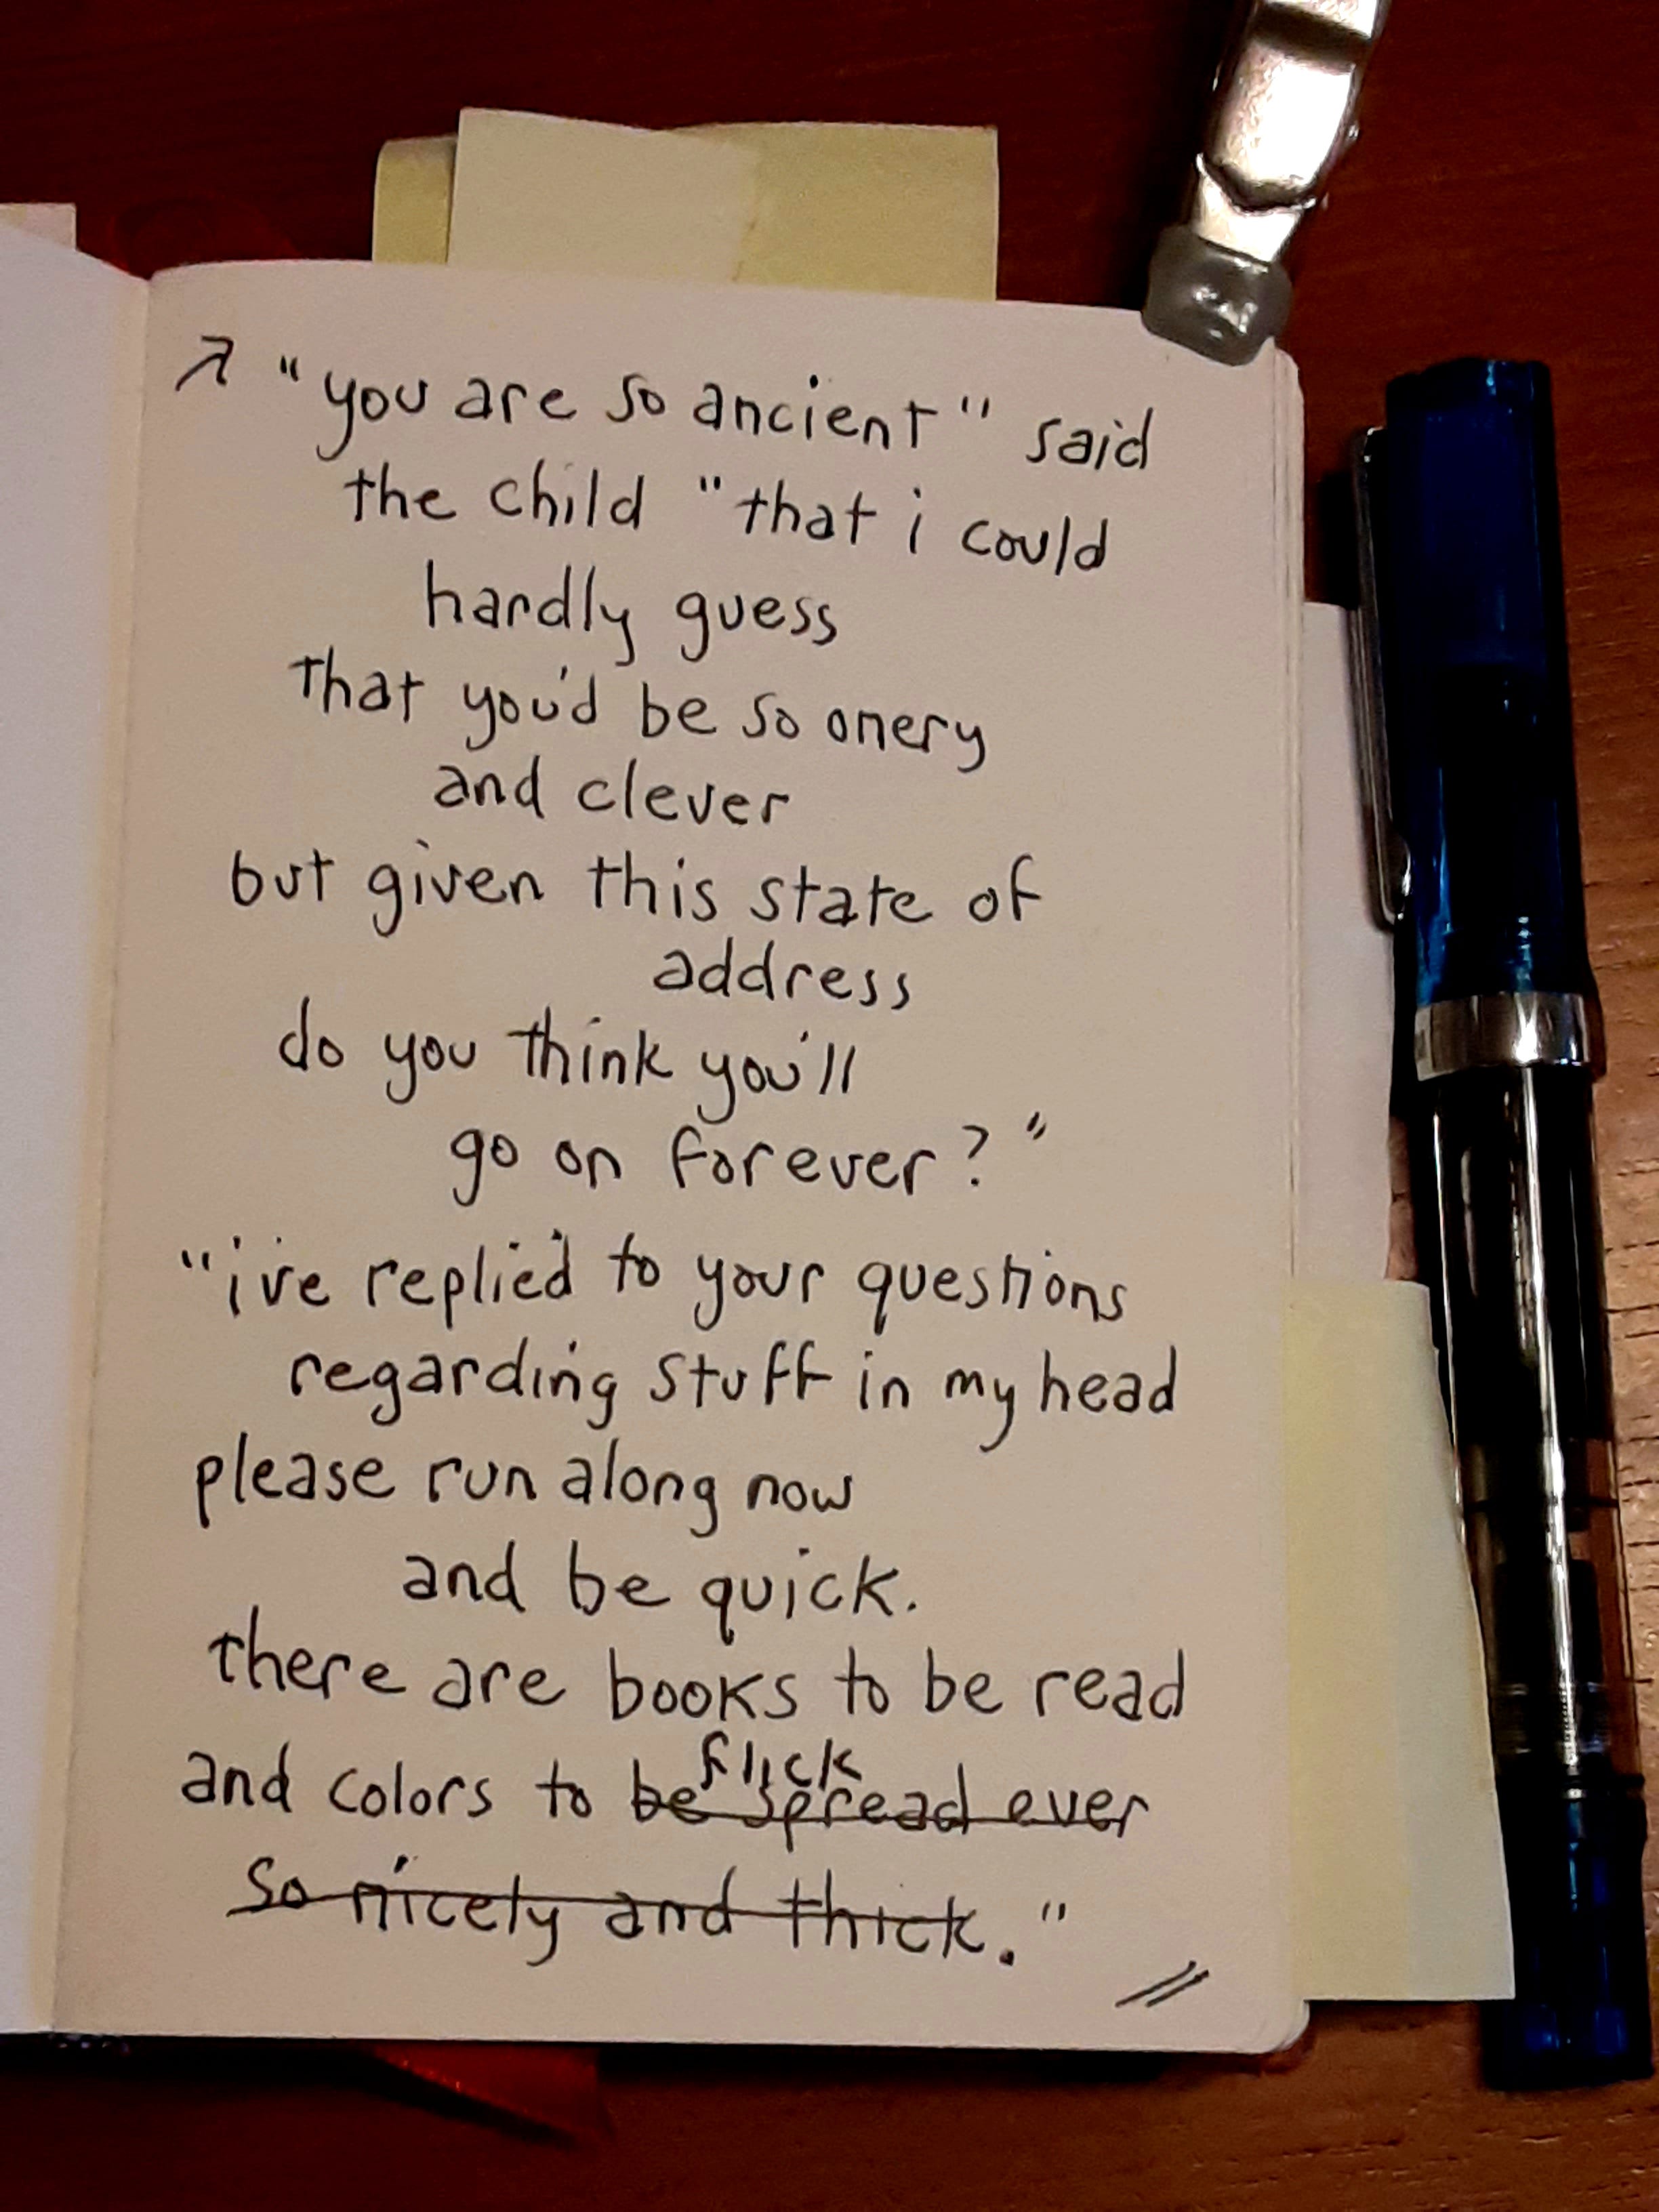 "you are so ancient" said
the child "that i could
hardly guess
that you'd be so onery
and clever
but given this state of
address
do you think you'll
go on forever?"
"i've replied to your questions
regarding stuff in my head
please run along now
and be quick.
there are books to be read
flick
and colors to be spread ever
so nicely and thick."